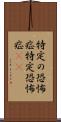 特定の恐怖
症特定恐怖
症